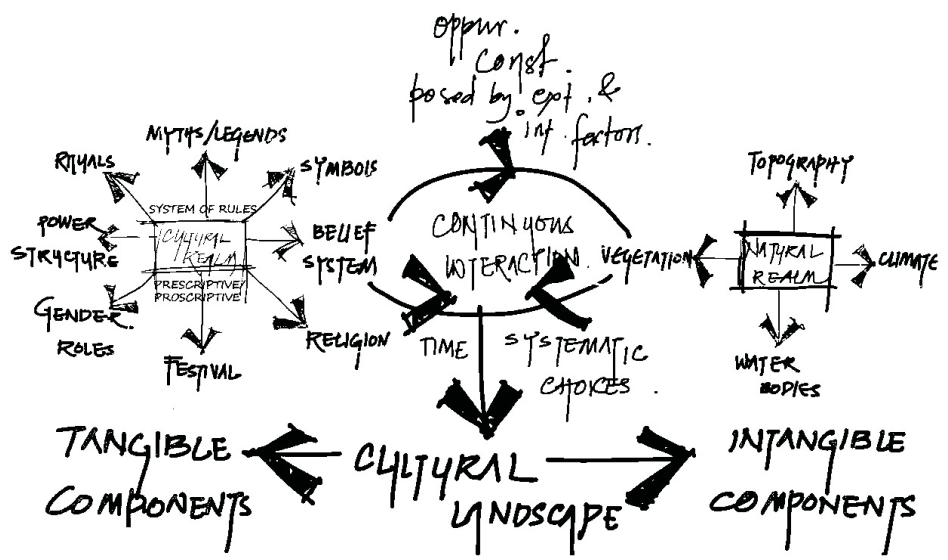 oppur.
const.
posed by. ext. &
int. factors.
MYTHS/LEGENDS
RITUALS
SYMBOLS
SYSTEM OF RULES
POWER
STRUCTURE
CULTURAL
REALM
BELIEF
SYSTEM
PRESCRIPTIVE/
PROSCRIPTIVE
GENDER
ROLES
FESTIVAL
RELIGION
CONTINUOUS
INTERACTION.
TIME
SYSTEMATIC
CHOICES.
TOPOGRAPHY
VEGETATION
NATURAL
REALM
CLIMATE
WATER
BODIES
TANGIBLE
COMPONENTS
CULTURAL
LANDSCAPE
INTANGIBLE
COMPONENTS